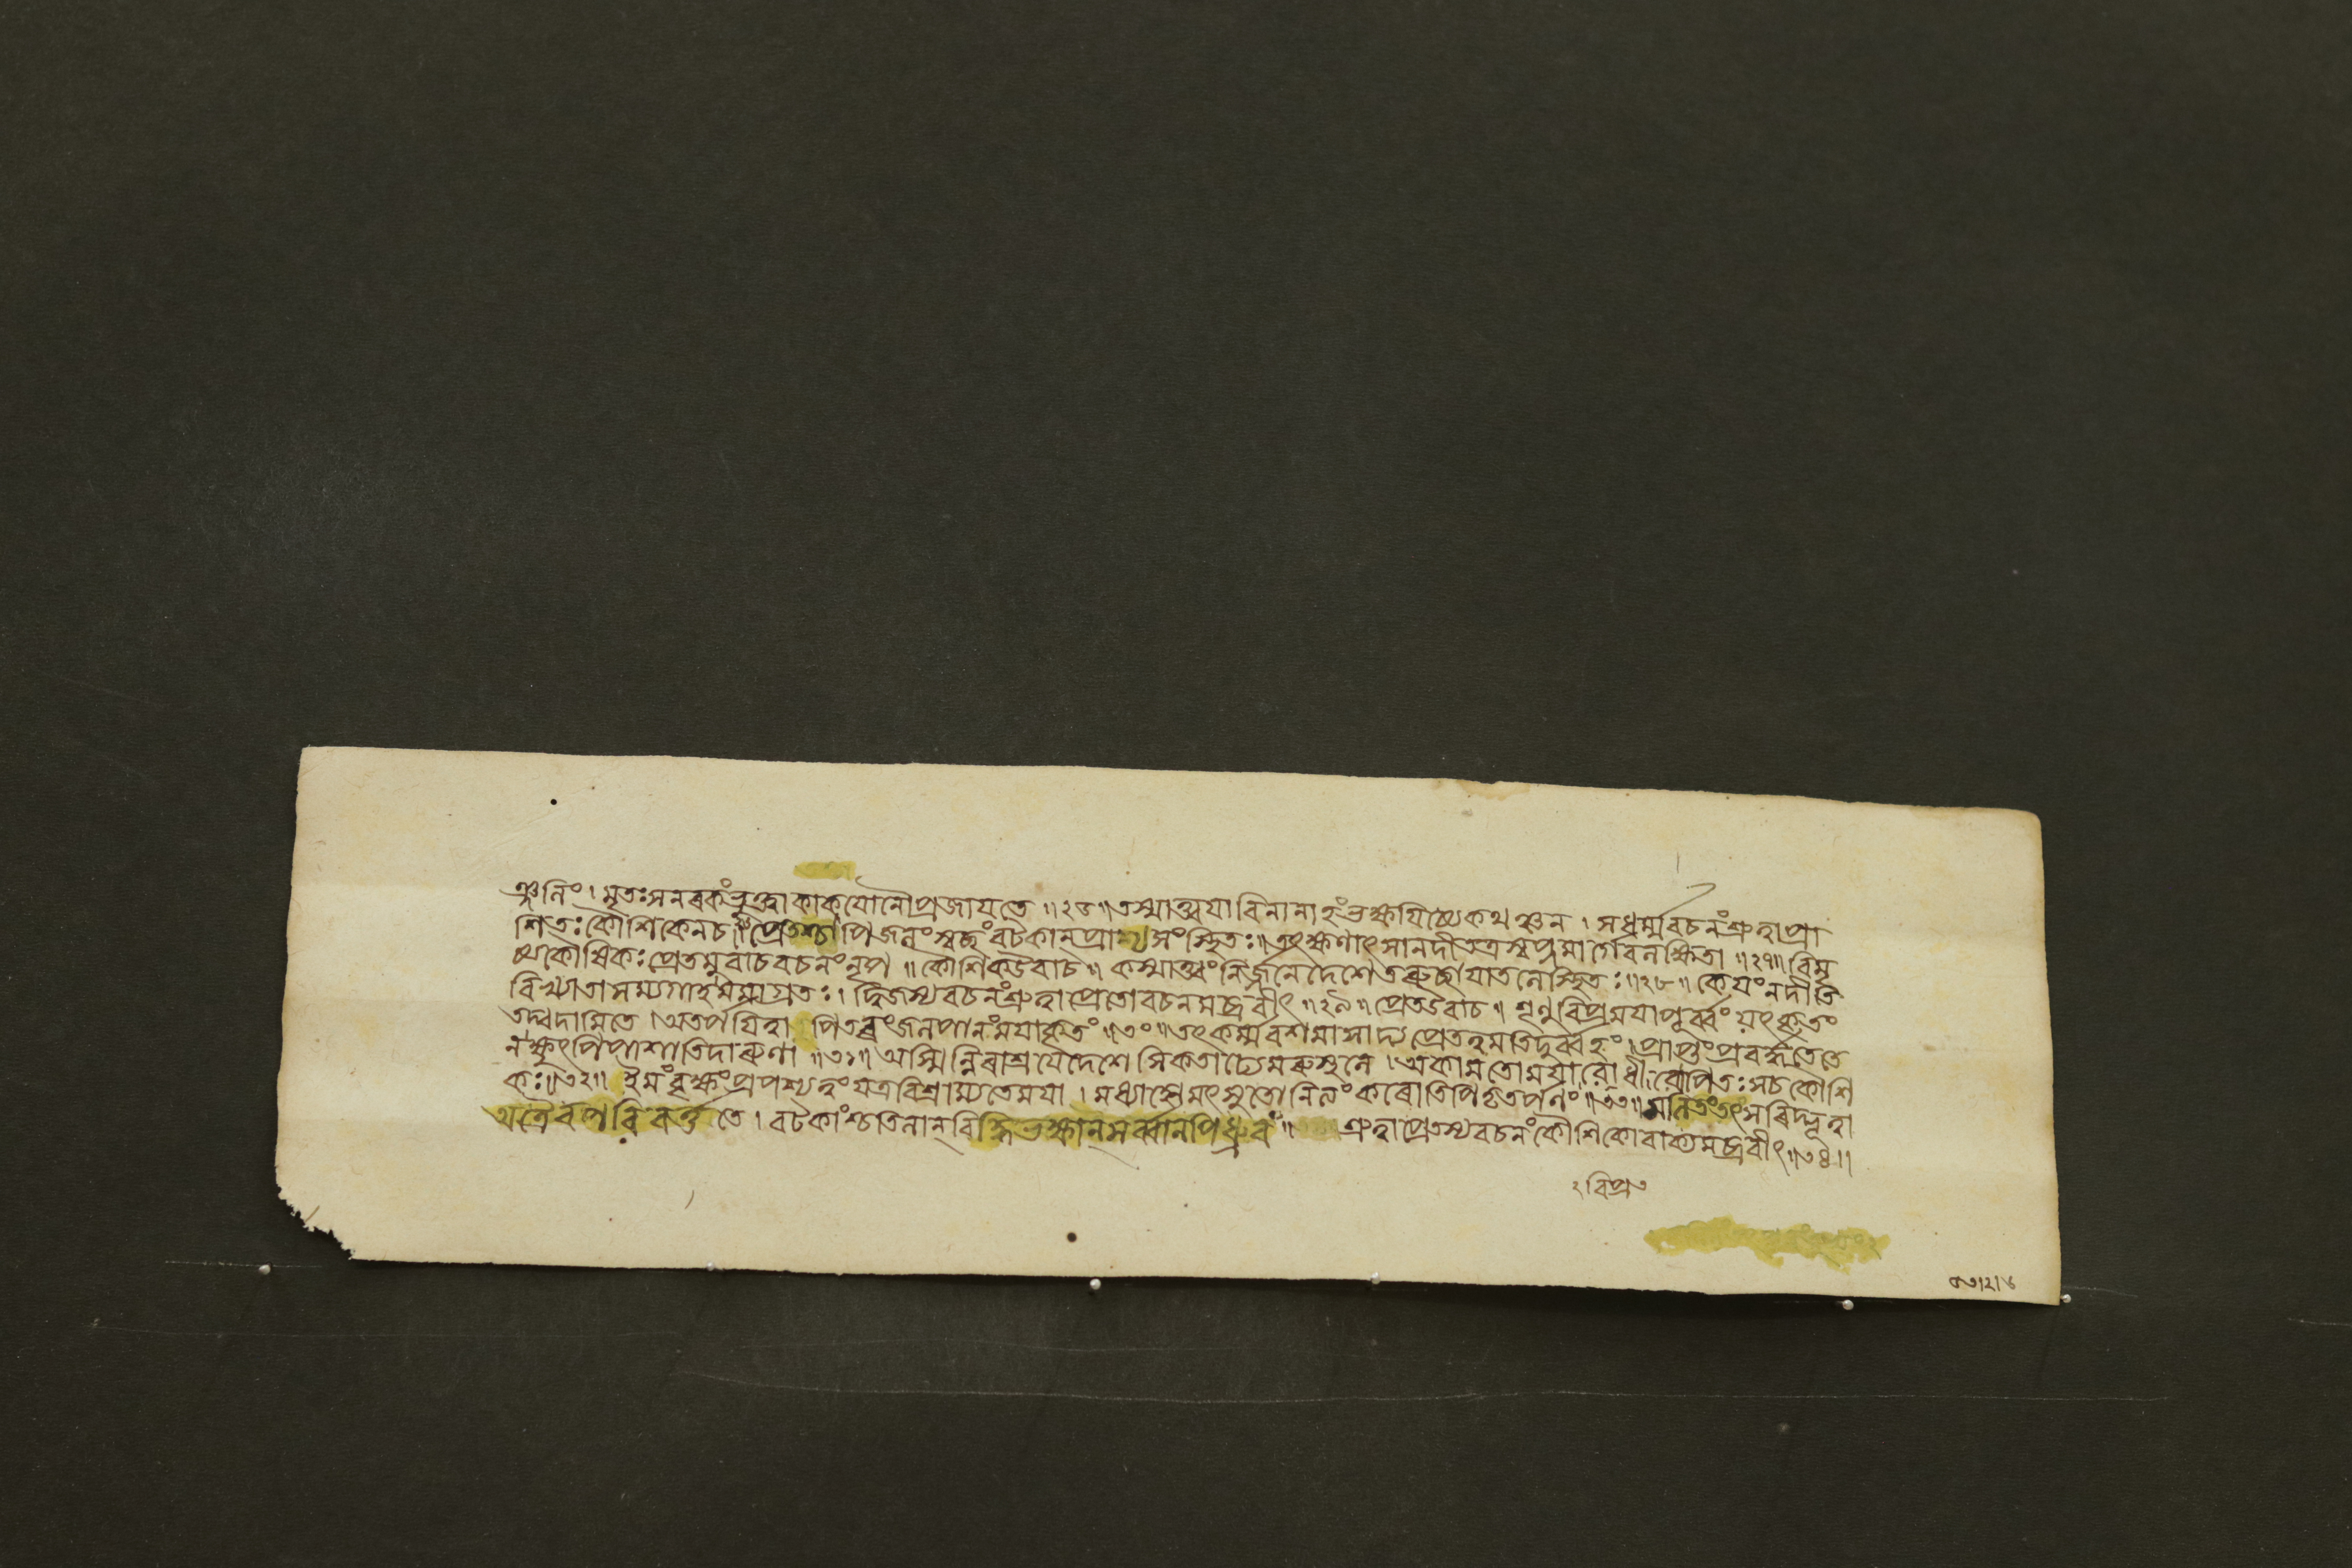 ঞ্জনিং। মৃতঃসনৰকংভুক্ত্বাকাকযোনৌপ্রজাযতে ॥২৬॥ তস্মাত্ত্বযাবিনানাহংভক্ষযিষ্যেকথঞ্চন । সধর্ম্মবচনংশ্রুত্বাপ্রা
শিতঃকৌশিকেনচ। প্রেতশ্চাপিজলংস্বচ্ছংবটকান্প্রাশ্যসংস্থিতঃ॥তৎক্ষণাৎসানদীতত্রস্বপ্নমার্গেবনক্ষিতা ॥২৭॥ বিমৃ
ষ্যকৌষিকঃপ্রেতমুবাচবচনংনৃপ ॥ কৌশিকউবাচ॥ কস্মাত্ত্বংনির্জ্জনেদেশেতৰুচ্ছাযাতলেস্থিতঃ॥২৮॥ কেযংনদীতি
বিখ্যাতাসম্যগাহমমাগ্রতঃ। দ্বিজস্যবচনংশ্রুত্বাপ্রেতোবচনমব্রবীৎ ॥২৯॥ প্রেতউবাচ॥ শৃণুবিপ্রমযাপুর্ব্বং যৎকৃতং
তদ্বদামিতে ।অতর্পযিত্বা পিতৄংজলপানংমযাকৃতং ॥৩০॥তৎকর্ম্মবশমাসাদ্যপ্রেতত্বমতিদুর্ব্বহং।প্রাপ্তুংপ্রবর্দ্ধতেতে
নক্ষুৎপিপাশাতিদাৰুণা ॥৩১॥ আস্মিন্নিৰাশ্রযেদেশে সিকতাঢ্যেমৰুস্থলে ।অকামতোমযা ৰোপিতঃসচকৌশি
কঃ॥৩২॥ ইমংবৃক্ষংপ্রপশ্যত্বংযত্রবিশ্রাম্যতেমযা । মধ্যাহ্নেমৎসুতোনিত্যংকৰোতিপিতৃতর্পণং॥৩৩॥ সৰিদ্ভূত্বা
অত্রৈবপৰিবর্ত্ততে । বটকাংশ্চতিলান্ সর্ব্বানপিধ্রুবং॥ শ্রুত্বাপ্রেতস্যবচনংকৌশিকোবাক্যমব্রবীৎ॥৩৪॥
২ বিপ্র